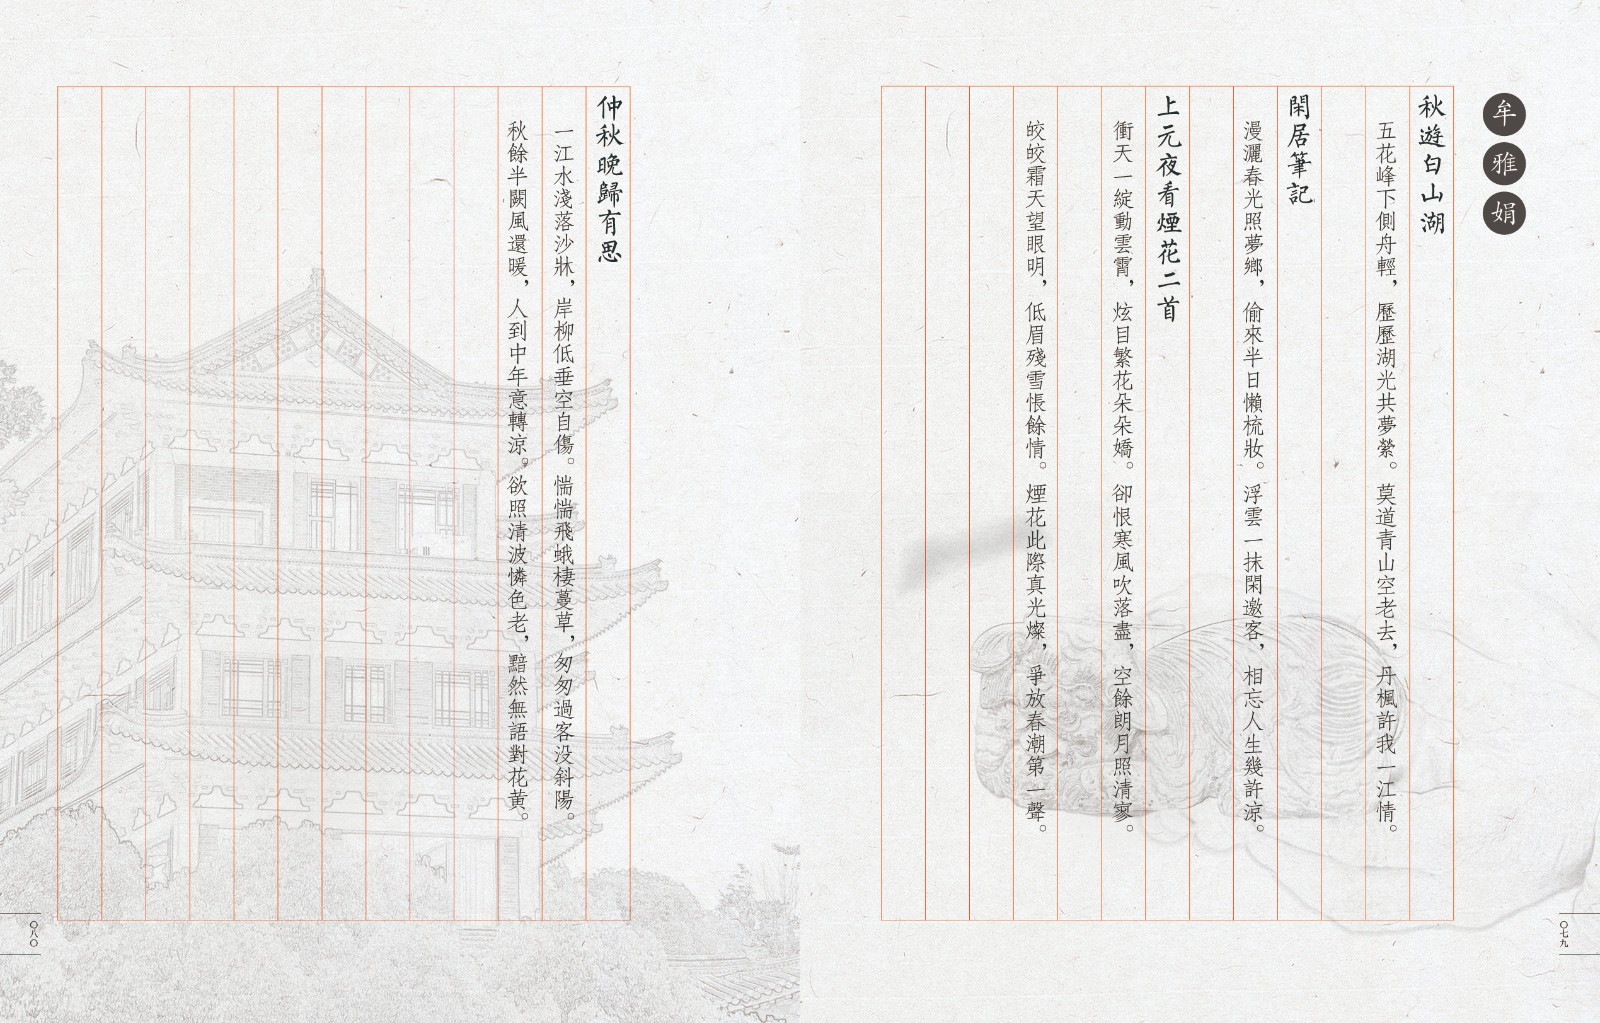 牟雅娟
秋遊白山湖
五花峰下側舟輕，歷歷湖光共夢縈。莫道青山空老去，丹楓許我一江情。
閑居筆記
漫灑春光照夢鄉，偷來半日懶梳妝。浮雲一抹閑邀客，相忘人生幾許涼。
上元夜看煙花二首
衝天一綻動雲霄，炫目繁花朵朵嬌。卻恨寒風吹落盡，空餘朗月照清寥。
皎皎霜天望眼明，低眉殘雪悵餘情。煙花此際真光燦，爭放春潮第一聲。
〇七九
仲秋晚歸有思
一江水淺落沙牀，岸柳低垂空自傷。惴惴飛蛾棲蔓草，匆匆過客没斜陽。
秋餘半闕風還暖，人到中年意轉涼。欲照清波憐色老，黯然無語對花黃。
〇八〇